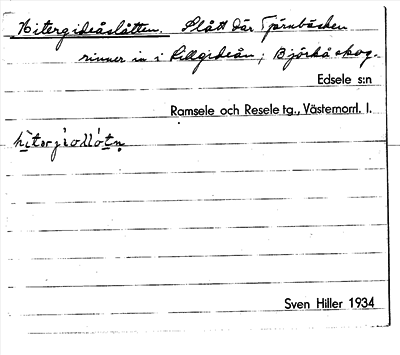 Hitergideåslåtten. Slått där Tjärnbäcken
rinner in i Lillgideån, Björkå skog.
Edsele s:n
Ramsele och Resele tg., Västernorrl. l.
Sven Hiller 1934